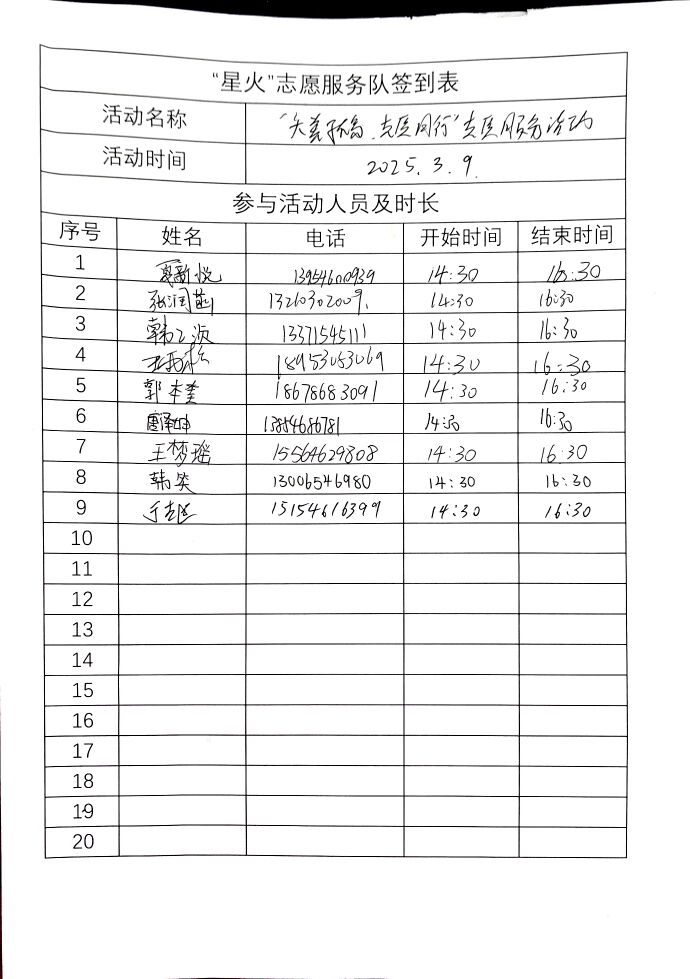 “星火”志愿服务队签到表
活动名称 “关爱孤高 志愿同行”志愿服务活动
活动时间 2025.3.9.
参与活动人员及时长
序号 姓名 电话 开始时间 结束时间
1 夏新悦 13954600939 14:30 16:30
2 张润菡 13260302009. 14:30 16:30
3 韩 13371545111 14:30 16:30
4 18953053069 14:30 16:30
5 郭本奎 18678683091 14:30 16:30
6 13854686781 14:30 16:30
7 王梦瑶 15564629808 14:30 16:30
8 韩笑 13006546980 14:30 16:30
9 于 15154616399 14:30 16:30
10
11
12
13
14
15
16
17
18
19
20